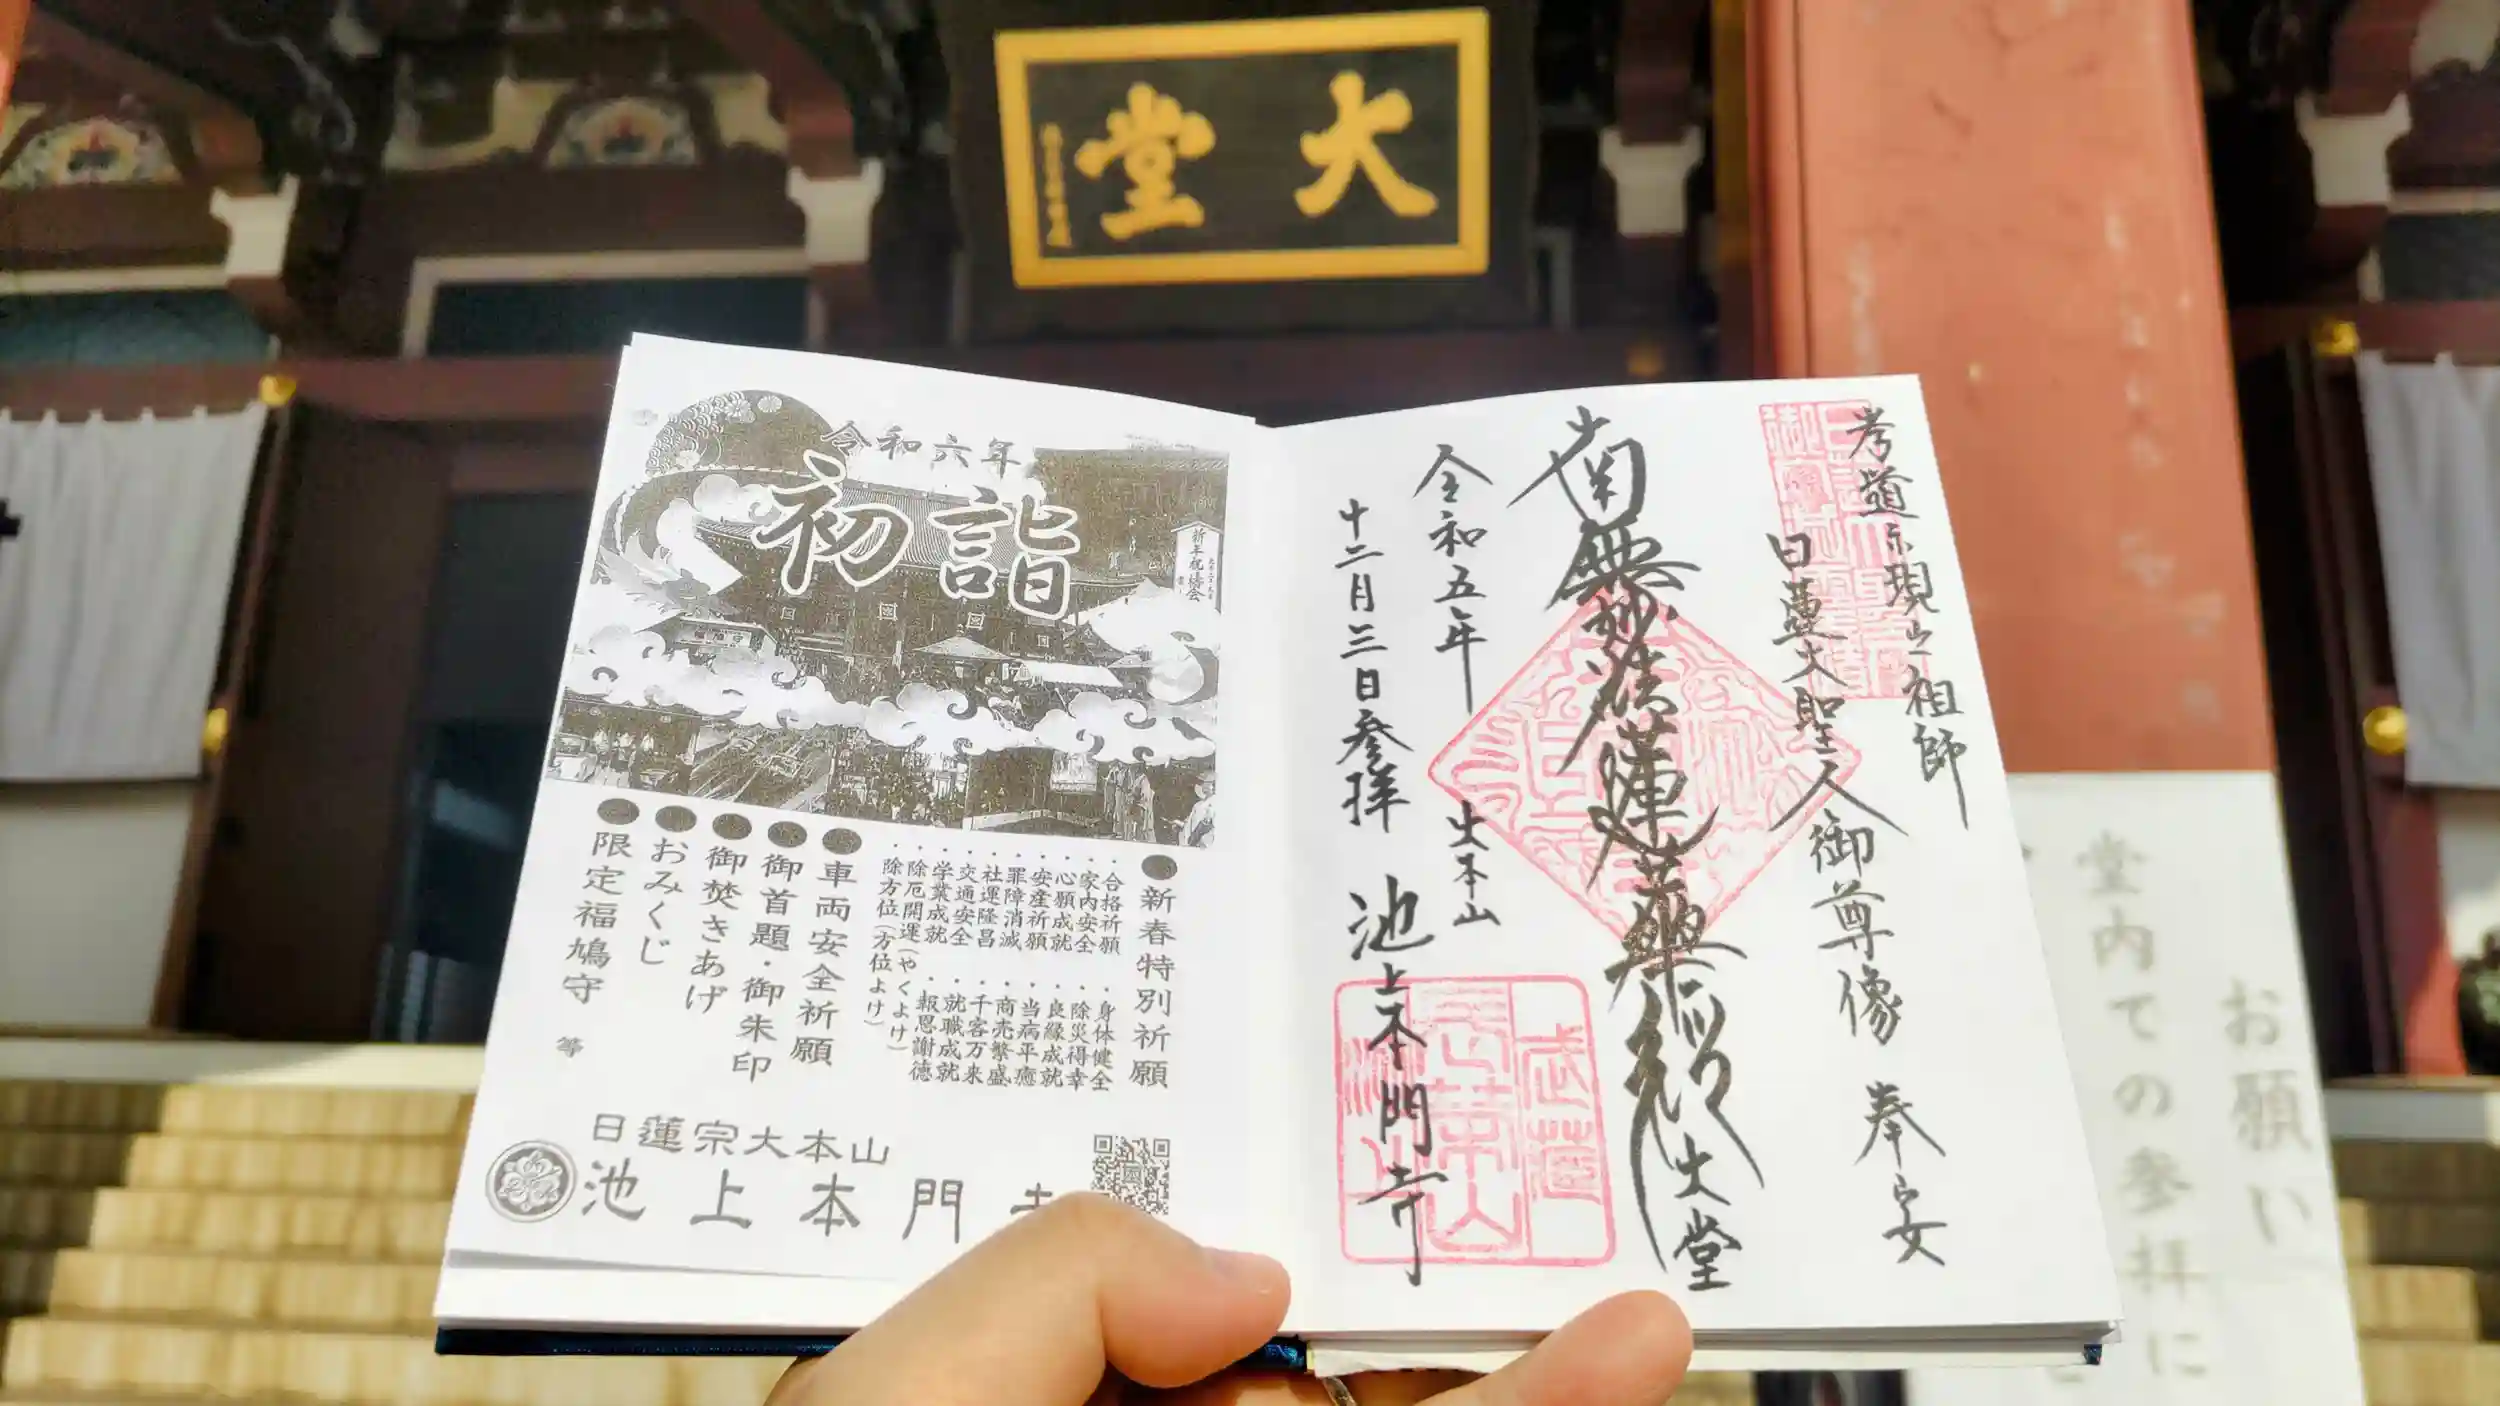 大堂
令和六年
初詣
新年祝祷会
新春特別祈願
・合格祈願　・身体健全
・家内安全　・除災得幸
・心願成就　・良縁成就
・安産祈願　・当病平癒
・罪障消滅　・商売繁盛
・社運隆昌　・千客万来
・交通安全　・就職成就
・学業成就　・報恩謝徳
・除厄開運（やくよけ）
・除方位（方位よけ）
車両安全祈願
御首題・御朱印
御焚きあげ
おみくじ
限定福鳩守　等
日蓮宗大本山
池上本門
孝道示現之祖師
日蓮大聖人御尊像　奉安
南無妙法蓮華経　大堂
令和五年　大本山
十二月三日参拝　池上本門寺
お願い
堂内での参拝に